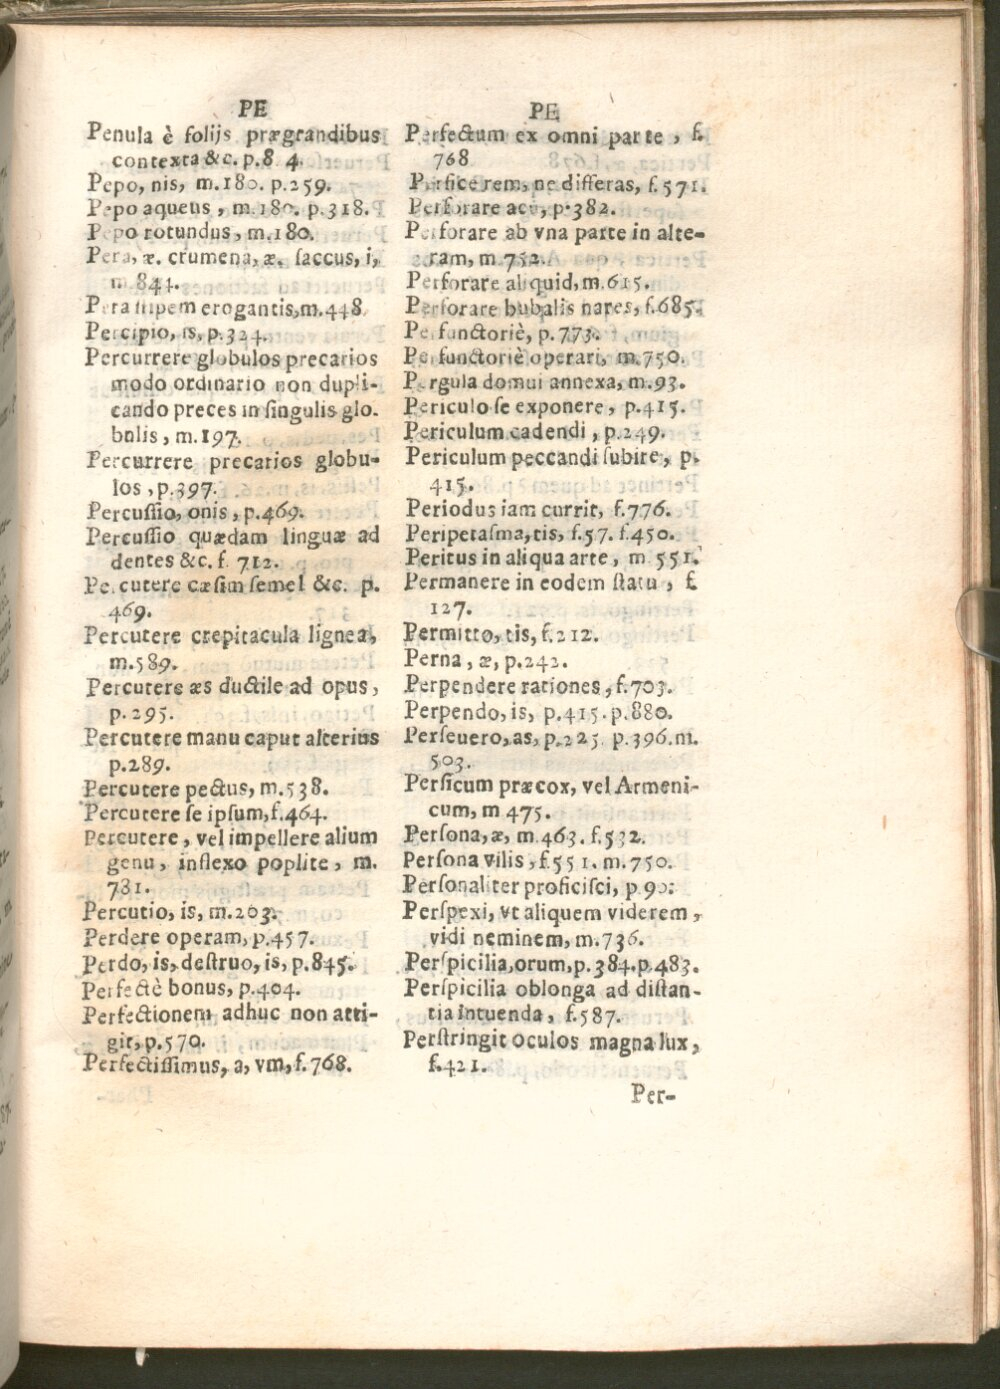 PE
Penula è folijs prægrandibus
contexta &c. p.8 4.
Pepo, nis, m.180. p.259.
Pepo aqueus, m.180. p.318.
Pepo rotundus, m.180.
Pera, æ. crumena, æ. saccus, i,
m 844.
Pera stipem erogantis, m.448
Percipio, is, p.324.
Percurrere globulos precarios
modo ordinario non dupli-
cando preces in singulis glo.
bulis, m.197.
Percurrere precarios globu-
los, p.397.
Percussio, onis, p.469.
Percussio quædam linguæ ad
dentes &c. f. 712.
Percutere cæsim semel &c. p.
469.
Percutere crepitacula lignea,
m.589.
Percutere æs ductile ad opus,
p.295.
Percutere manu caput alterius
p.289.
Percutere pectus, m.538.
Percutere se ipsum, f.464.
Percutere, vel impellere alium
genu, inflexo poplite, m.
781.
Percutio, is, m.203.
Perdere operam, p.457.
Perdo, is, destruo, is, p.845.
Perfectè bonus, p.404.
Perfectionem adhuc non atti-
git, p.570.
Perfectissimus, a, vm, f.768.
PE
Perfectum ex omni parte, f.
768
Perfice rem, ne differas, f.571.
Perforare acu, p.382.
Perforare ab vna parte in alte-
ram, m.752.
Perforare aliquid, m.615.
Perforare bubalis nares, f.685.
Perfunctoriè, p.773.
Perfunctoriè operari, m.750.
Pergula domui annexa, m.93.
Periculo se exponere, p.415.
Periculum cadendi, p.249.
Periculum peccandi subire, p.
415.
Periodus iam currit, f.776.
Peripetasma, tis, f.57. f.450.
Peritus in aliqua arte, m 551.
Permanere in eodem statu, f.
127.
Permitto, tis, f.212.
Perna, æ, p.242.
Perpendere rationes, f.703.
Perpendo, is, p.415. p.880.
Perseuero, as, p.225. p.396. m.
503.
Persicum præcox, vel Armeni-
cum, m 475.
Persona, æ, m.463. f.532.
Persona vilis, f.551. m.750.
Personaliter proficisci, p.90.
Perspexi, vt aliquem viderem,
vidi neminem, m.736.
Perspicilia, orum, p.384. p.483.
Perspicilia oblonga ad distan-
tia intuenda, f.587.
Perstringit oculos magna lux,
f.421.
Per-